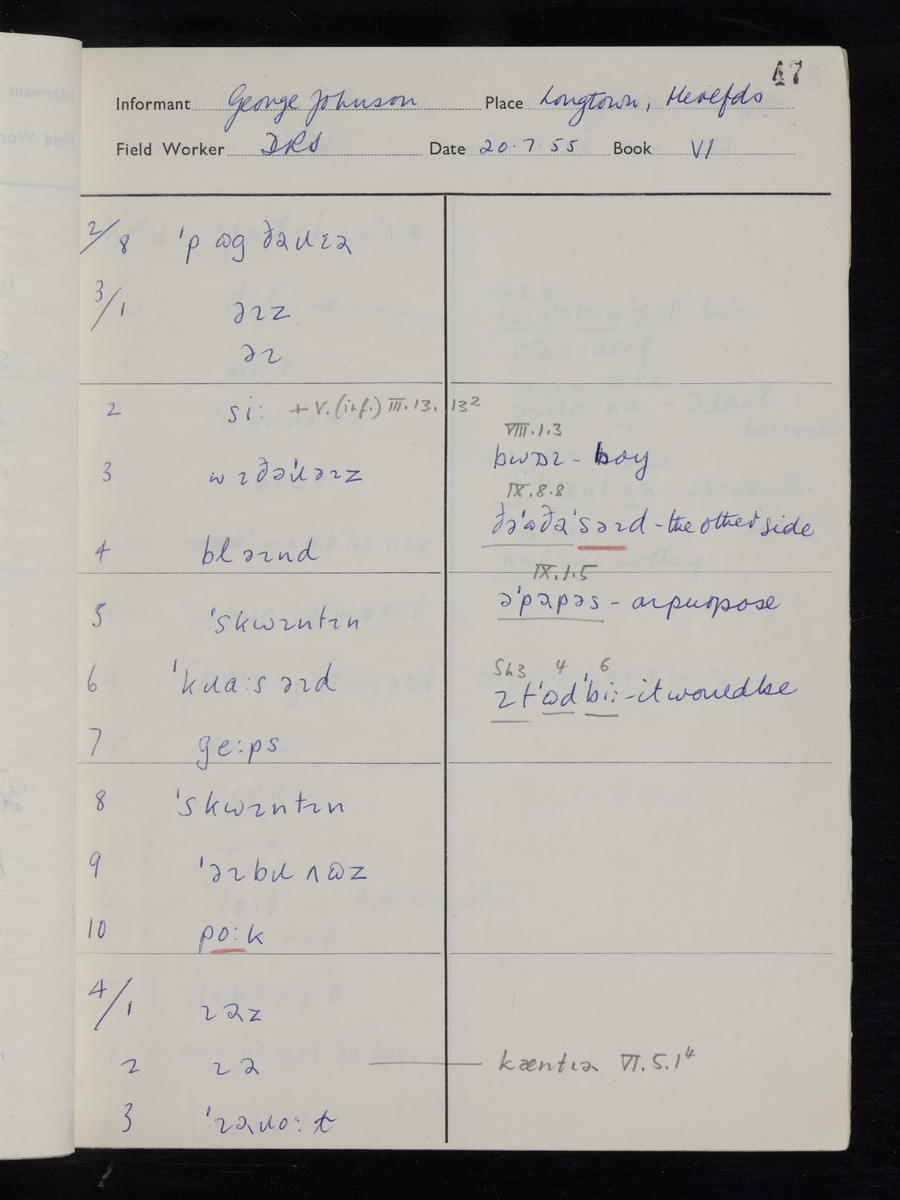 47
Informant George Johnson Place Longtown, Herefds
Field Worker DRS Date 20.7.55 Book VI
2/8 'pɷgðəɹɪə
3/1 əɪz
əɪ
2 si: + V. (inf.) III.13.13²
3 wɪðəˈɹəɪz
4 bləɪnd
5 'skwɪntɪn
6 'kɹa:səɪd
7 ge:ps
8 'skwɪntɪn
9 'əɪbɹʌɷz
10 po:k
4/1 ɪəz
2 ɪə
3 'ɪəɹo:t
VIII.1.3
bwɒɪ - boy
IX.8.8
ðə'əðə'səɪd - the other side
IX.1.5
ə'pəpəs - a purpose
Sh3 4 6
ɪt'ɷd'bi: - it would be
kæntɪə VI.5.1⁴